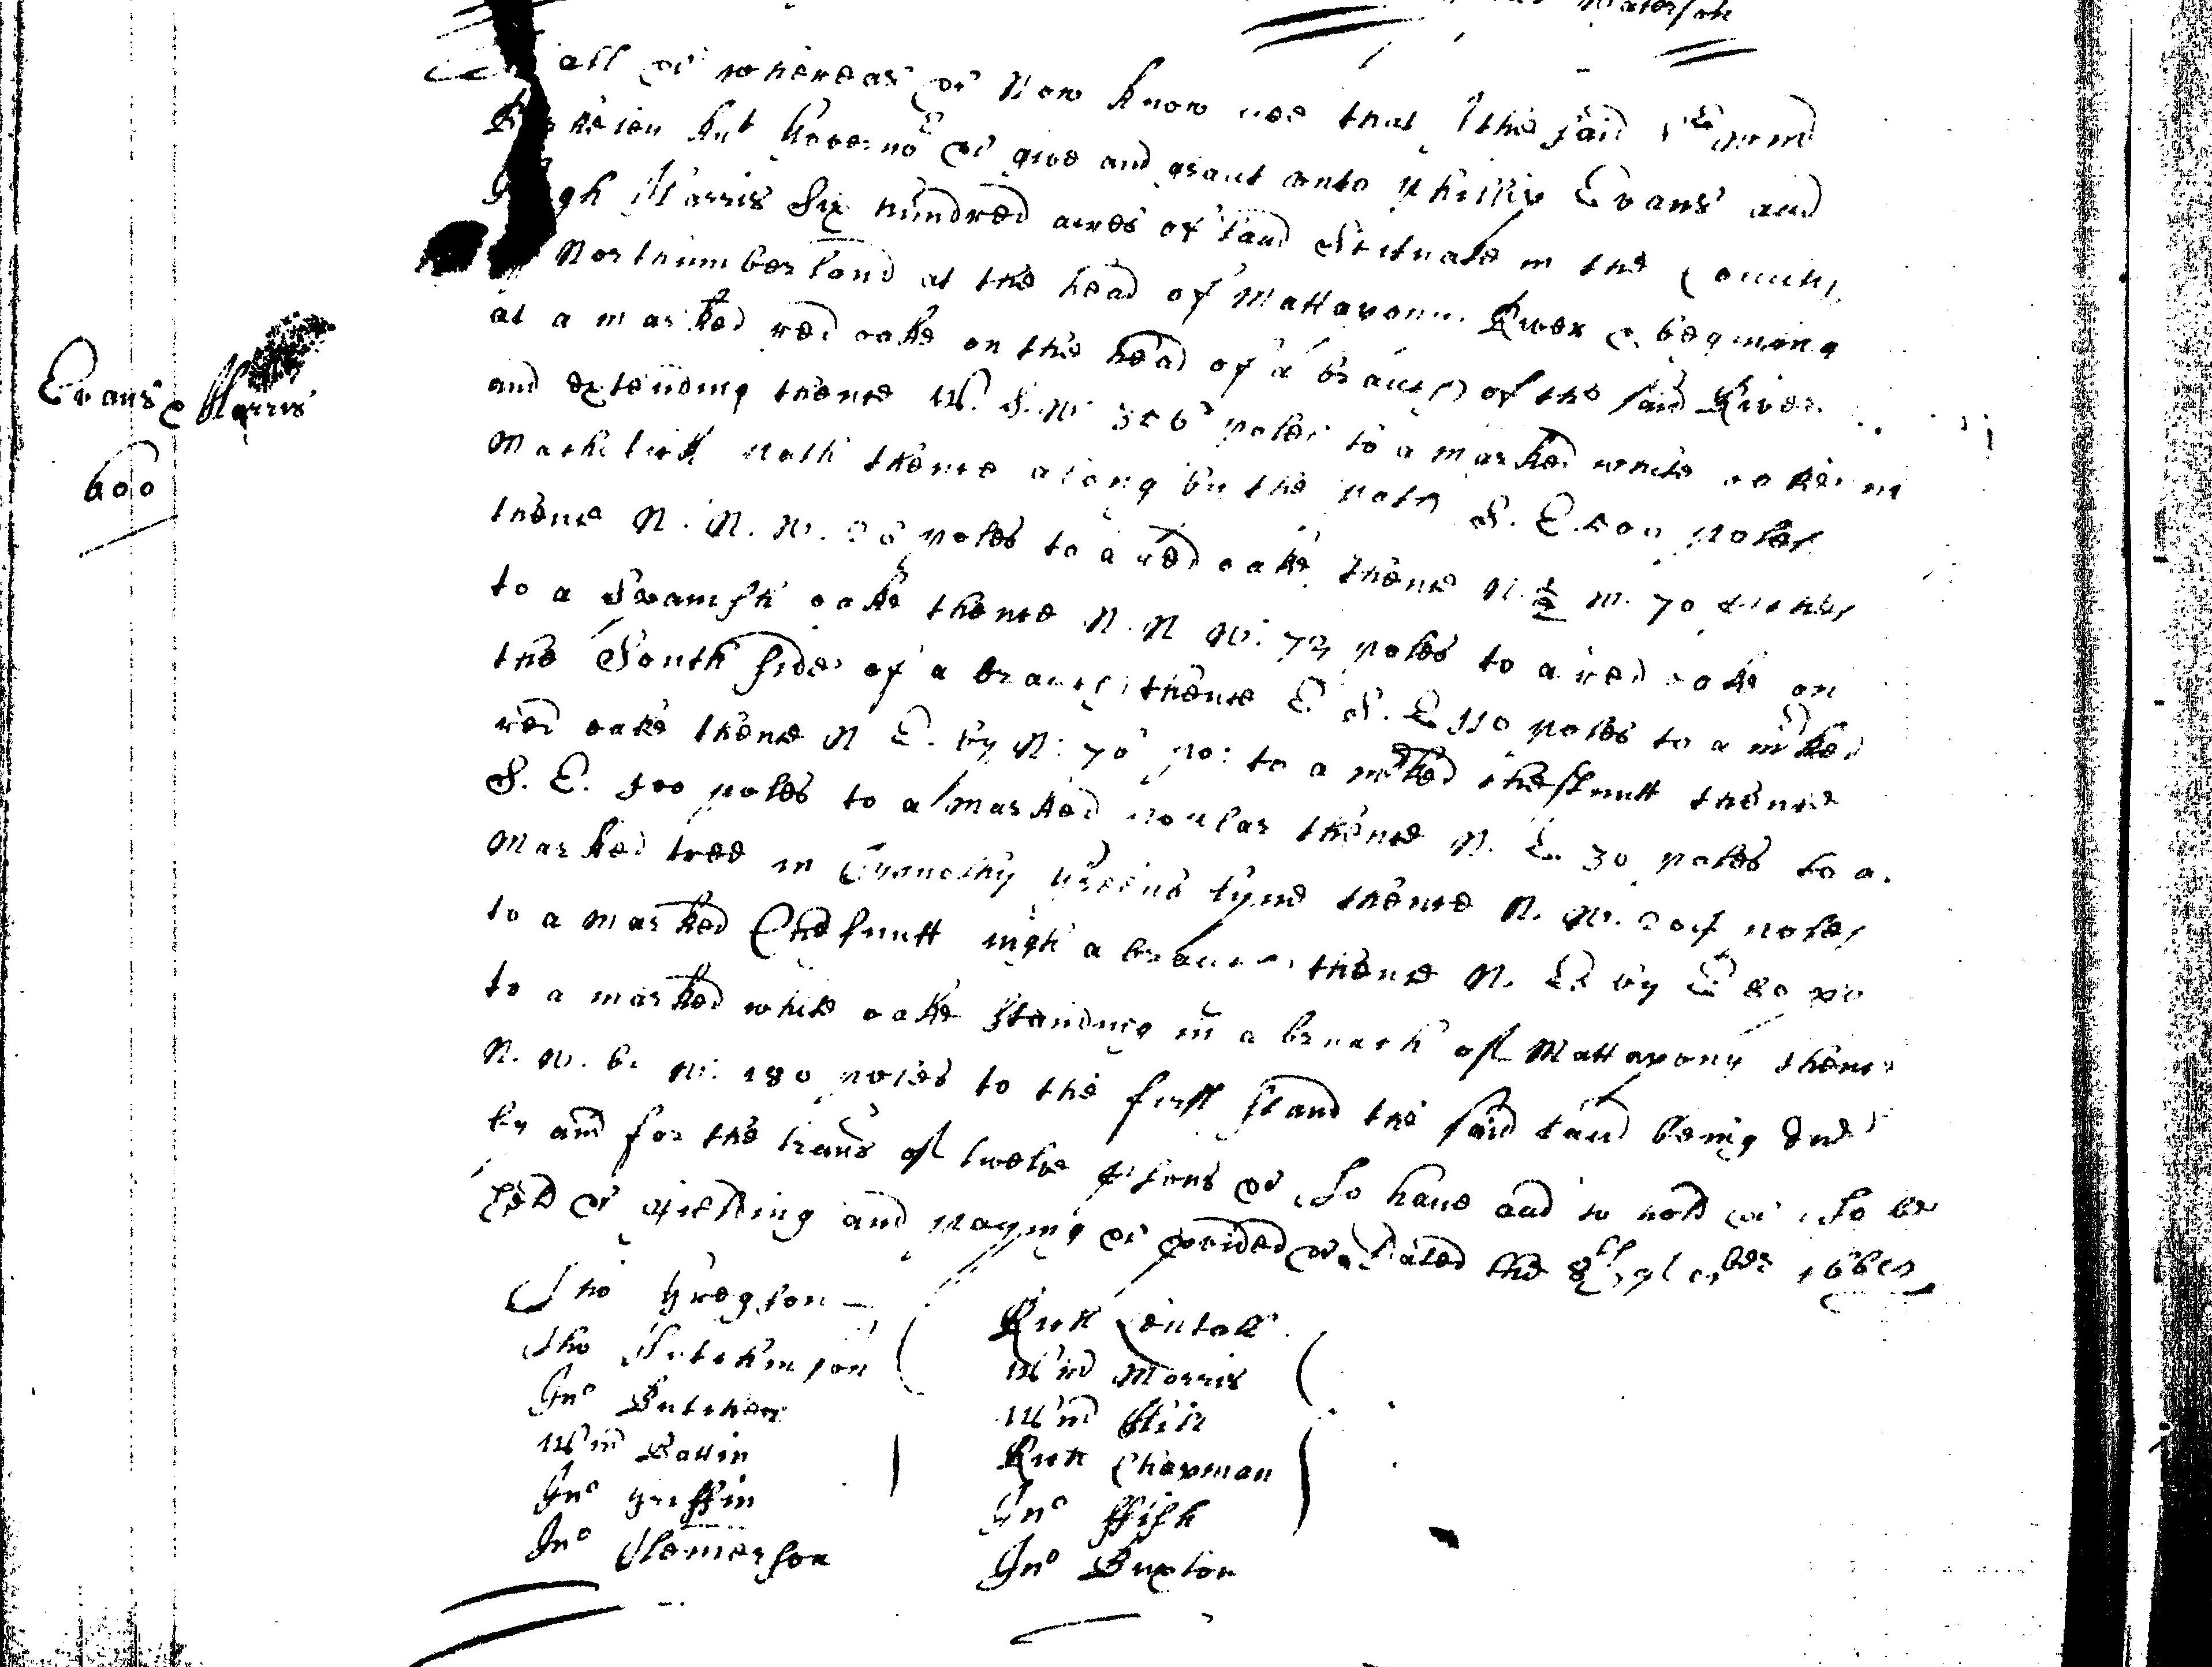 all &c whereas &c Now know yee that I the said Sr Wm
Berkeley Knt Governor &c give and grant unto Phillip Evans and
Hugh Harris Six hundred acres of land Scituate in the County
Northumberland at the head of Mattapony River & begining
at a marked red oake on the head of a branch of the said River
and extending thence W. S. W. 356 poles to a marked white oake in
Machitick path thence along by the path S. E. 500 poles
thence N. N. W. 26 poles to a red oake thence N. ½ W. 70
to a Spanish oake thence N. N W. 72 poles to a red oake on
the South side of a branch thence E S. E 110 poles to a mked
red oake thence N E. by N. 70 po: to a mked chesnutt thence
S. E. 500 poles to a marked poplar thence N. E. 30 poles to a
Marked tree in Tymothy Greens lyne thence N. W. 204 poles
to a marked Chesnutt nigh a branch thence N. E by E 80 po
to a marked white oake standing in a branch of Mattapony thence
N. W. b. W. 180 poles to the first stand the said land being due
by and for the trans of twelve psons &c To have and to hold &c To be
held &c yielding and paying &c provided &c Dated the 8th
Evans & Harris
600
Tho Gregson
Tho Hutchinson
Jno Butcher
Wm Battin
Jno Griffin
Jno Stemerson
Rich Lentall
Wm Morris
Wm Hill
Rich Chapman
Jno ffish
Jno Buxton